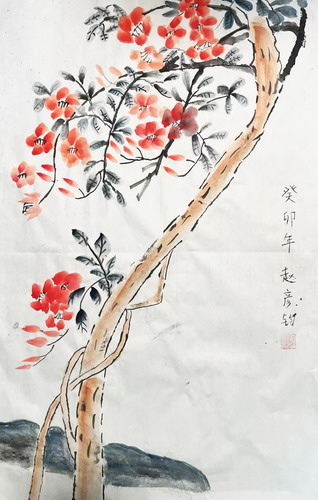 癸卯年 赵彦钧